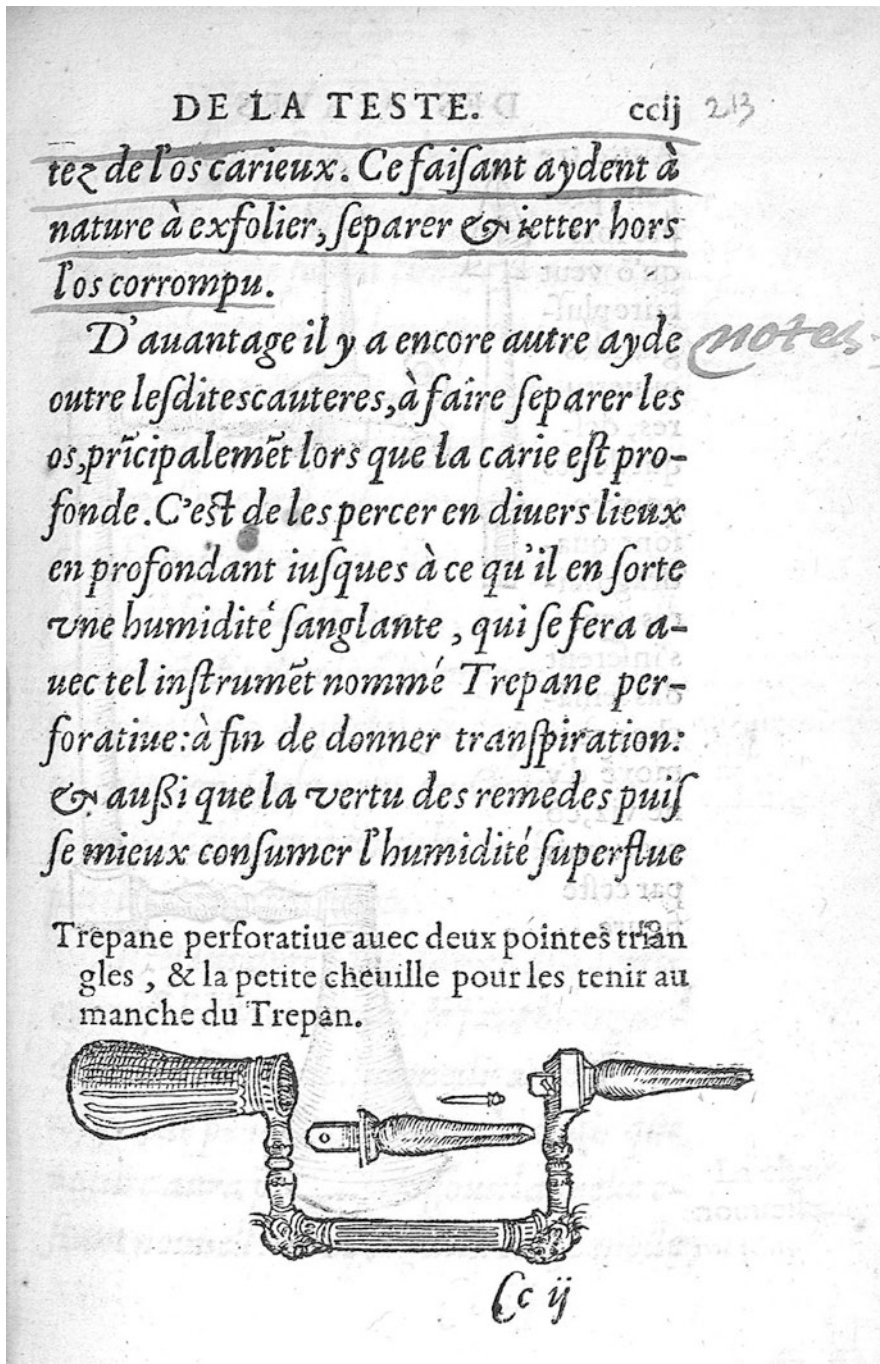 DE LA TESTE. ccij 213
tez de l'os carieux. Ce faiſant aydent à
nature à exfolier, ſeparer & ietter hors
l'os corrompu.
D'auantage il y a encore autre ayde notes
outre leſditescauteres, à faire ſeparer les
os, pri̅cipaleme̅t lors que la carie eſt pro-
fonde. C'eſt de les percer en diuers lieux
en profondant iuſques à ce qu'il en ſorte
vne humidité ſanglante, qui ſe fera a-
uec tel inſtrume̅t nommé Trepane per-
foratiue: à fin de donner tranſpiration:
& außi que la vertu des remedes puiſ
ſe mieux conſumer l'humidité ſuperflue
Trepane perforatiue auec deux pointes trian
gles, & la petite cheuille pour les tenir au
manche du Trepan.
Cc ij